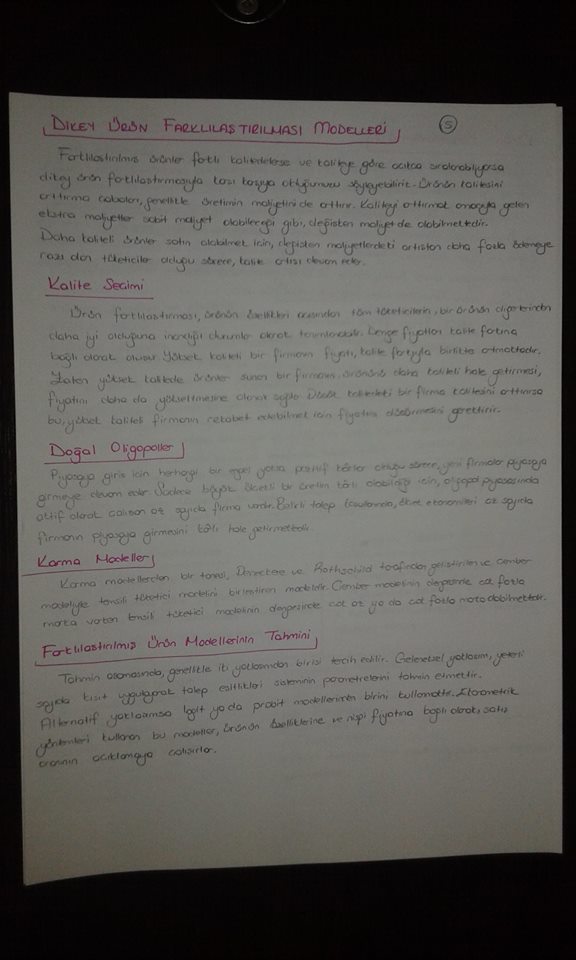 DİKEY ÜRÜN FARKLILAŞTIRILMASI MODELLERİ
5
Farklılaştırılmış ürünler farklı kalitedelerse ve kaliteye göre açıkça sıralanabiliyorsa
dikey ürün farklılaştırmasıyla karşı karşıya olduğumuzu söyleyebiliriz. Ürünün kalitesini
arttırma çabaları, genellikle üretimin maliyetini de arttırır. Kaliteyi arttırmak amacıyla gelen
ekstra maliyetler sabit maliyet olabileceği gibi, değişken maliyet de olabilmektedir.
Daha kaliteli ürünler satın alabilmek için, değişken maliyetlerdeki artıştan daha fazla ödemeye
razı olan tüketiciler olduğu sürece, kalite artışı devam eder.
Kalite Seçimi
Ürün farklılaştırması, ürünün özellikleri açısından tüm tüketicilerin, bir ürünün diğerlerinden
daha iyi olduğuna inandığı durumlar olarak tanımlanabilir. Denge fiyatları kalite farkına
bağlı olarak oluşur. Yüksek kaliteli bir firmanın fiyatı, kalite farkıyla birlikte artmaktadır.
Zaten yüksek kalitede ürünler sunan bir firmanın, ürününü daha kaliteli hale getirmesi,
fiyatını daha da yükseltmesine olanak sağlar. Düşük kalitedeki bir firma kalitesini arttırırsa
bu, yüksek kaliteli firmanın rekabet edebilmek için fiyatını düşürmesini gerektirir.
Doğal Oligopoller
Piyasaya giriş için herhangi bir engel yoksa pozitif kârlar olduğu sürece, yeni firmalar piyasaya
girmeye devam eder. Sadece büyük ölçekli bir üretim kârlı olabildiği için, oligopol piyasasında
aktif olarak çalışan az sayıda firma vardır. Belirli talep koşullarında, ölçek ekonomileri az sayıda
firmanın piyasaya girmesini kârlı hale getirmektedir.
Karma Modeller
Karma modellerden bir tanesi, Deneckere ve Rothschild tarafından geliştirilen ve çember
modeliyle temsili tüketici modelini birleştiren modeldir. Çember modelinin dengesinde çok fazla
marka varken temsili tüketici modelinin dengesinde çok az ya da çok fazla marka olabilmektedir.
Farklılaştırılmış Ürün Modellerinin Tahmini
Tahmin aşamasında, genellikle iki yaklaşımdan birisi tercih edilir. Geleneksel yaklaşım, yeterli
sayıda kısıt uygulayarak talep eşitlikleri sisteminin parametrelerini tahmin etmektir.
Alternatif yaklaşımsa logit ya da probit modellerinden birini kullanmaktır. Ekonometrik
yöntemleri kullanan bu modeller, ürünün özelliklerine ve nispi fiyatına bağlı olarak, satış
oranının açıklamaya çalışırlar.